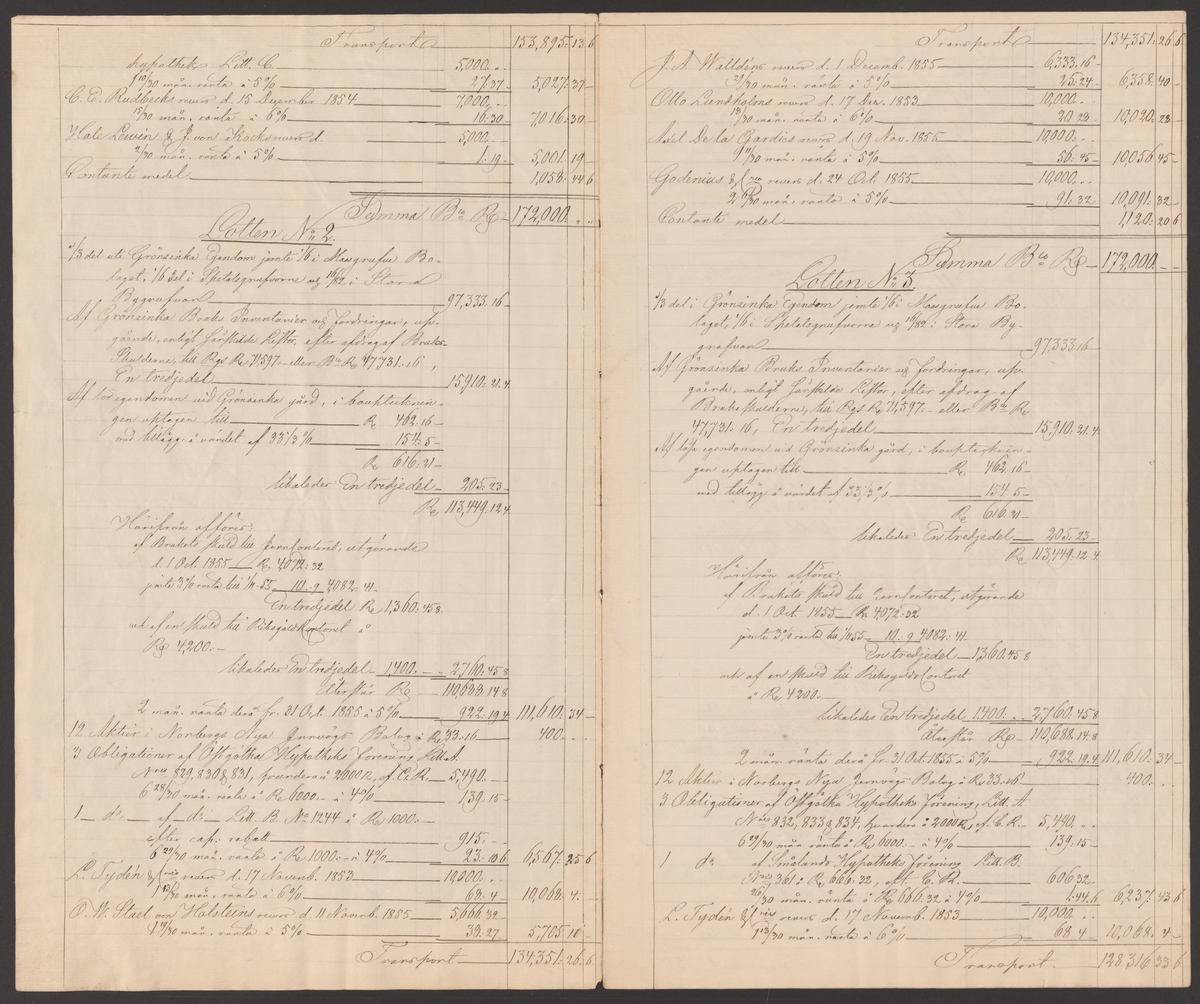 Transport 153,895. 13 6
hypothek Litt. C. 5,000 . .
1 10/30 mån. ränta à 5% 27. 37 5,027. 37 –
C. E. Rudbecks revers d. 15 December 1854 7,000 . .
15/30 mån. ränta à 6% 16. 30 7,016. 30 –
5,000 – .
2/30 mån. ränta à 5% 1. 19 5,001 19 –
Contante medel 1,058. 44 6
Summa Bco Rd 172,000. . .
Lotten No 2.
1/3 del uti Grönsinka Egendom jemte 1/6 i Masgrufve Bo-
laget, 1/6 del i Spetalsgrufvorne och 10/82 i Stora
Bygrufvan 97,333. 16 –
Af Grönsinka Bruks Inventarier och fordringar, upp-
gående, enligt särskilda Listor, efter afdrag af Bruks-
Skulderne, till Rgs Rd 71,597.– eller Bco Rd 47,731. 16,
En tredjedel 15,910. 21. 4
Af lösegendomen vid Grönsinka gård, i bouptecknin-
gen uptagen till Rd 462. 16 –
med tillägg å värdet af 33 1/3 % 154. 5 –
Rd 616. 21 –
likaledes En tredjedel 205. 23 –
Rd 113,449. 12. 4
Härifrån afföres:
af Brukets skuld till Jernkontoret, utgörande
d. 1 Oct. 1855 Rd 4072. 32
jemte 3% ränta till 10. 9 4082. 41.
En tredjedel Rd 1,360. 45. 8
och af en skuld till Riksgäldskontoret å
Rd 4,200.–
likaledes En tredjedel 1400. – 2,760. 45 8
Återstår Rd 110,688. 14 8
2 mån. ränta derå fr. 31 Oct. 1855 à 5% 922. 19 4 111,610. 34 –
12 Aktier i Norbergs Nya Jernvägs Bolag à Rd 33. 16 400. . .
3 Obligationer af Östgötha Hypotheks förening Litt. A.
Nris 829, 830 & 831, hvardera à 2000 Rd, af C. R. 5,490. –
6 28/30 mån. ränta à Rd 6000.– à 4% 139. 15 –
1 do af do Litt. B. No 1244 à Rd 1000.–
efter cap: rabatt 915. –
6 29/30 mån. ränta à Rd 1000:– à 4% 23. 10 6 6,567. 25 6
L. Tydén & revers d. 17 Novemb. 1853 10,000. –
1 13/30 mån. ränta à 6% 68. 4 – 10,068. 4. –
O. W. Stael von Holsteins revers d. 11 Novemb. 1855 5,666. 32 –
1 19/30 mån. ränta à 5% 38. 27 5,705. 11 –
Transport 134,351. 26. 6
Transport 134,351. 26 6
J. A. Walldéns revers d. 1 Decemb. 1855 6,333. 16 –
29/30 mån. ränta à 5% 25. 24 6,358. 40 –
Otto Lundholms revers d. 17 Dec. 1853 10,000. –
13/30 mån. ränta à 6% 20 28 10,020. 28 –
Axel De la Gardies revers d. 19 Nov. 1855 10,000. –
11/30 mån. ränta à 5% 56. 45 – 10,056 45 –
Godenius & revers d. 24 Oct. 1855 10,000. . .
2 6/30 mån. ränta à 5% 91. 32 10,091. 32 –
Contante medel 1,120. 20 6
Summa Bco Rd 172,000. – –
Lotten No 3.
1/3 del i Grönsinka Egendom jemte 1/6 i Masgrufve Bo-
laget, 1/6 i Spetalsgrufvorna och 10/82 i Stora By-
grufvan 97,333. 16 –
Af Grönsinka Bruks Inventarier och fordringar, upp-
gående, enligt särskilda Listor, efter afdrag af
Bruksskulderne, till Rgs Rd 71,597.– eller Bco Rd
47,731. 16, En tredjedel 15,910. 21. 4
Af lösa egendomen vid Grönsinka gård, i bouptecknin-
gen uptagen till Rd 462. 16 –
med tillägg å värdet af 33 1/3 % 154. 5 –
Rd 616. 21 –
likaledes En tredjedel 205. 23 –
Rd 113,449. 12. 4
Härifrån afföres:
af Brukets skuld till Jernkontoret, utgörande
d. 1 Oct. 1855 Rd 4072: 32
jemte 3% ränta till 10. 9 4082. 41.
En tredjedel 1,360. 45 8
och af en skuld till Riksgälds Contoret
à Rd 4200.–
likaledes En tredjedel 1400. . . 2,760. 45 8
Återstår Rd 110,688. 14 8
2 mån. ränta derå fr. 31 Oct. 1855 à 5% 922. 19. 4 111,610. 34 –
12 Aktier i Norbergs Nya Jernvägs Bolag à Rd 33. 16 400. . .
3 Obligationer af Östgötha Hypotheks förening, Litt. A
Nris 832, 833 & 834, hvardera à 2000 Rd, af C. R. 5,490. . .
6 29/30 mån. ränta à Rd 6000.– à 4% 139. 15 –
1 do af Smålands Hypotheks förening Litt. B.
No 361 à Rd 666: 32, aft. C. R. 606 32.
26/30 mån. ränta à Rd 666. 32 à 4% 1. 44. 6 6,237. 43 6
L. Tydén & revers d. 17 Novemb. 1853 10,000. . .
1 13/30 mån. ränta à 6% 68. 4 – 10,068. 4 –
Transport 128,316. 33 6